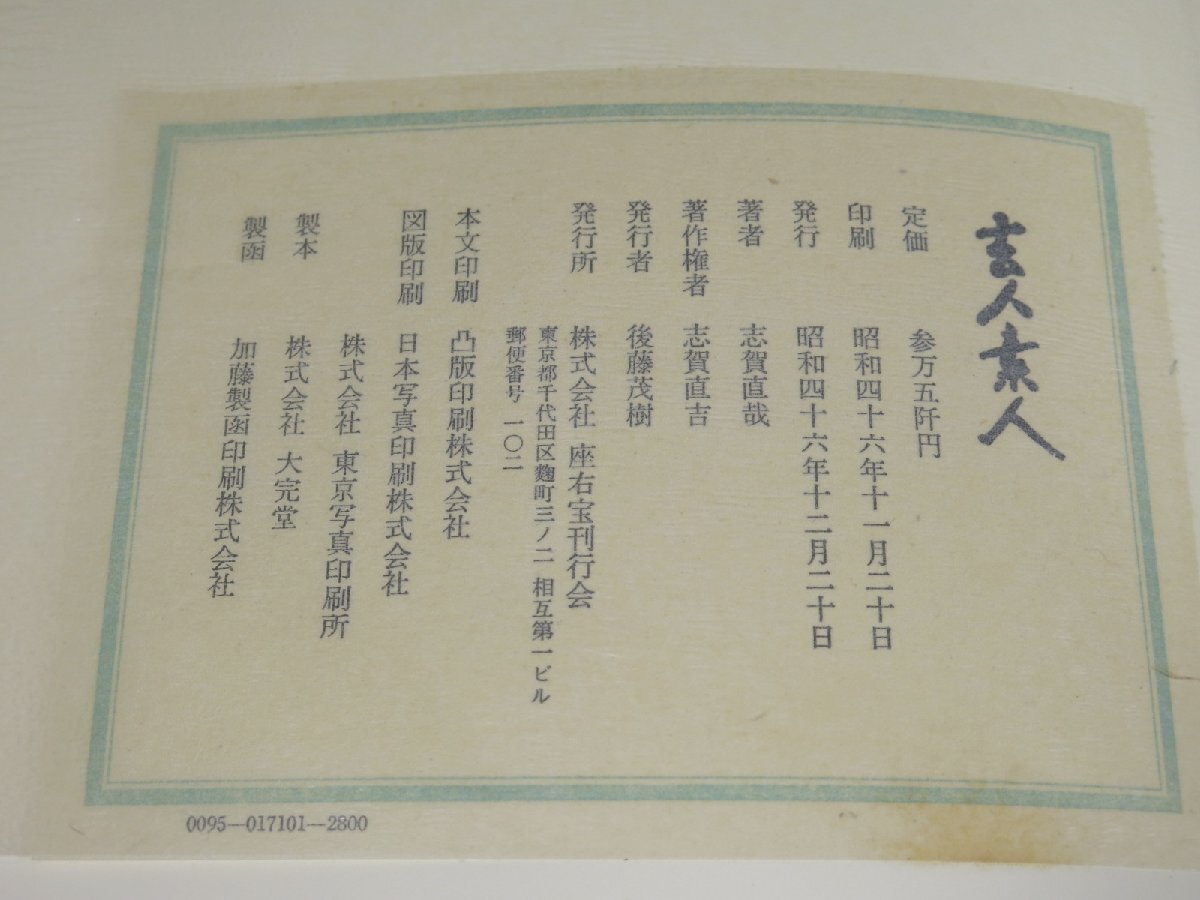 玄人素人
定価 参万五阡円
印刷 昭和四十六年十一月二十日
発行 昭和四十六年十二月二十日
著者 志賀直哉
著作権者 志賀直吉
発行者 後藤茂樹
発行所 株式会社 座右宝刊行会
東京都千代田区麹町三ノ二 相互第一ビル
郵便番号 一〇二
本文印刷 凸版印刷株式会社
図版印刷 日本写真印刷株式会社
株式会社 東京写真印刷所
製本 株式会社 大完堂
製函 加藤製函印刷株式会社
0095—017101—2800